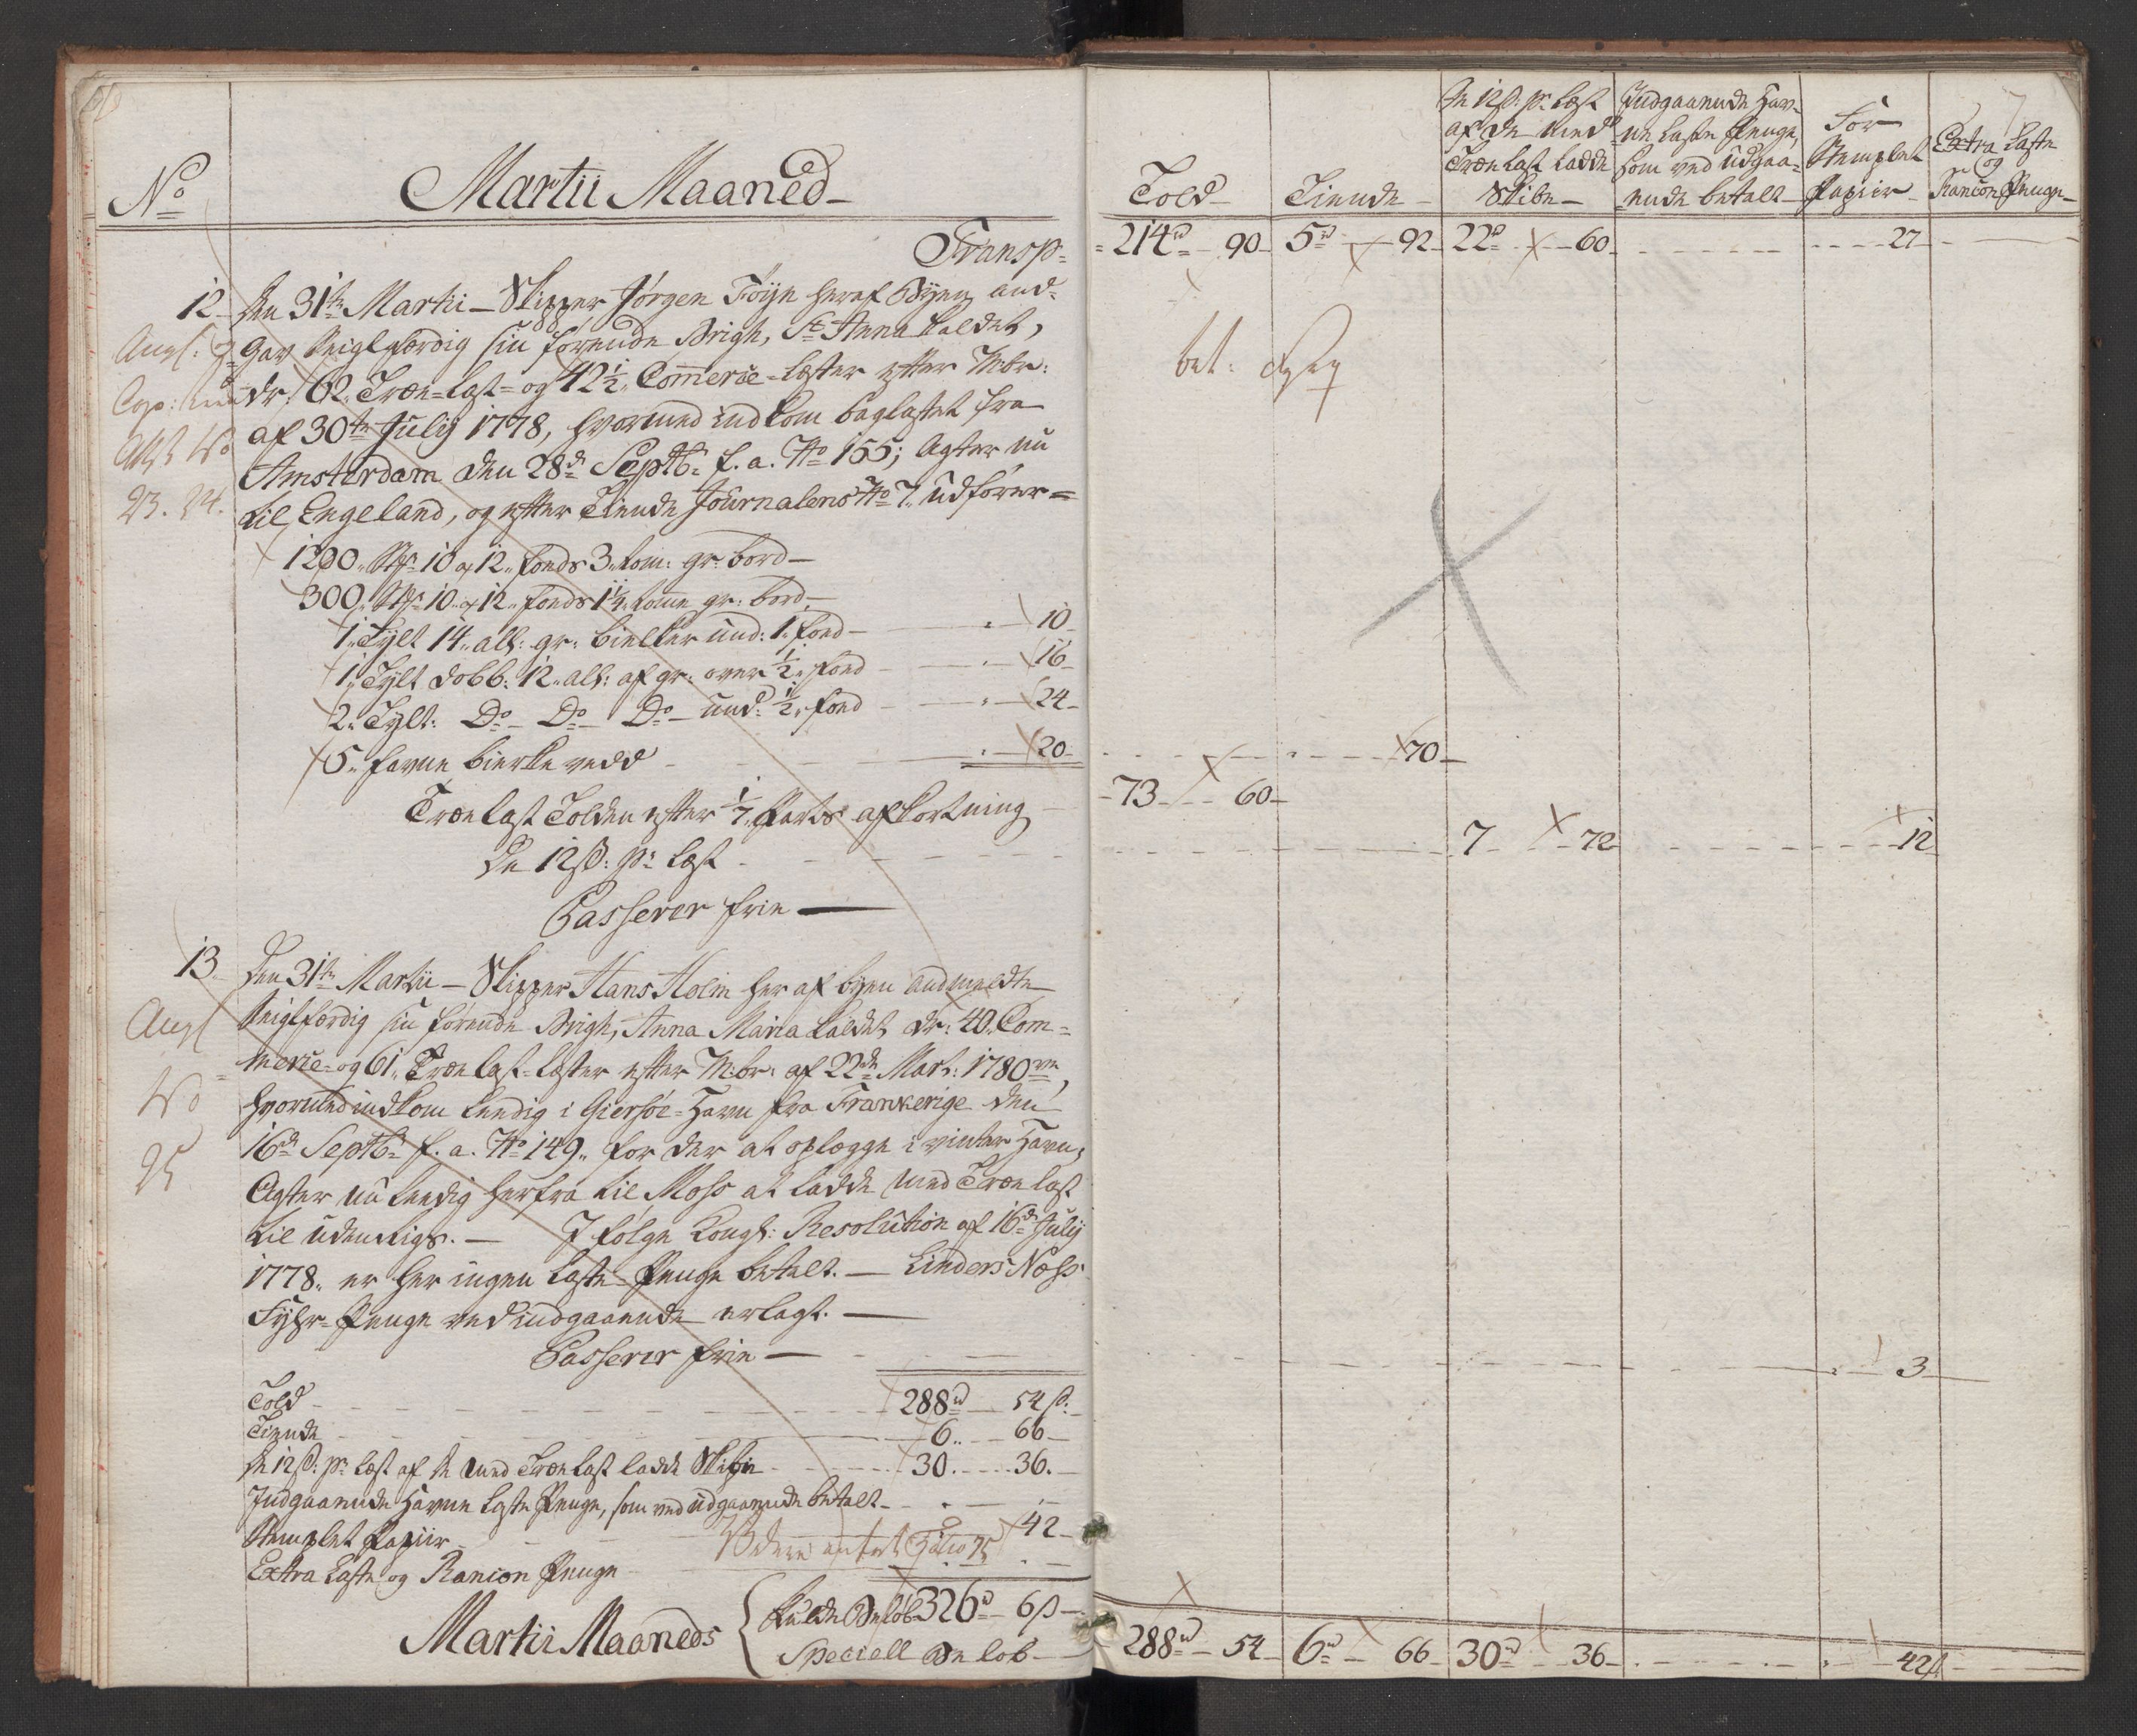 No
Martii Maaned
Transp:
12 Den 31te Martii – Skipper Jørgen Föÿn heraf Bÿen and=
gav Seiglfærdig sin förende Brigh, St Anna kaldet,
dr: 62 Træ=Last= og 42½ Commerce=Læster efter M:br:
af 30te Julÿ 1778, hvormed indkom baglastet fra
Amsterdam den 28de Septbr f. a. No 155; Agter nu
til Engeland, og efter Tiende Journalens No 7 udfører=
1200 Stk 10 a 12 fods 3 tom: gr: bord
300 Stk 10 a 12 fods 1¼ tomme gr: bord
1 Tylt 14 all: gr: bielker und: 1 food 10
1 Tylt dobb: 12 all: af gr: over ½ food 16
2 Tylt: Do Do Do und: ½ food 24
5 favne birke vedd 20
Trælast Tolden efter 1/7 Parts afkortning
De 12 ß: pr Læst
Passerer frie
13 Den 31te Martii – Skipper Hans Holm her af bÿen andmeldte
Seiglfærdig sin förende Brigh, Anna Maria kaldet dr: 40 Com=
merce= og 61 Trælast=læster efter M:br: af 22de Mart: 1780ve,
hvormed indkom ledig i Giersöe=Havn fra Frankerige den
16de Septbr f. a. No 149 for der at oplægge i vinter Havn,
Agter nu ledig herfra til Moss at ladde med Trælast
til udenrigs. – I følge Kongl: Resolution af 16de Julÿ
1778 er her ingen Læste Penge betalt. – Linders Næss
Fÿhr=Penge ved indgaaende erlagt.
Passerer frie
Told 288rd 54 ß:
Tiende 6 66
De 12 ß: pr Læst af de med Trælast ladde Skibe 30 36
Indgaaende Havne Læste Penge, som ved udgaaende betalt
Stemplet Papiir 42
Extra Læste og Rancon Penge
Martii Maaneds
fulde Beløb 326rd 6 ß
Speciell Beløb
Angl:
No
23. 24.
Angl
No
25
Told
Tiende
De 12 ß: pr Læst
af de med
Trælast ladde
Skibe
Indgaaende Hav=
ne Læste Penge,
som ved udgaa=
ende betalt
For
Stemplet
Papiir
Extra Læste
og
Rancon Penge
7
214rd 90 5rd 92 22rd 60 27
bet:
70
73 60
7 72 12
3
288rd 54 6rd 66 30rd 36 42 ß